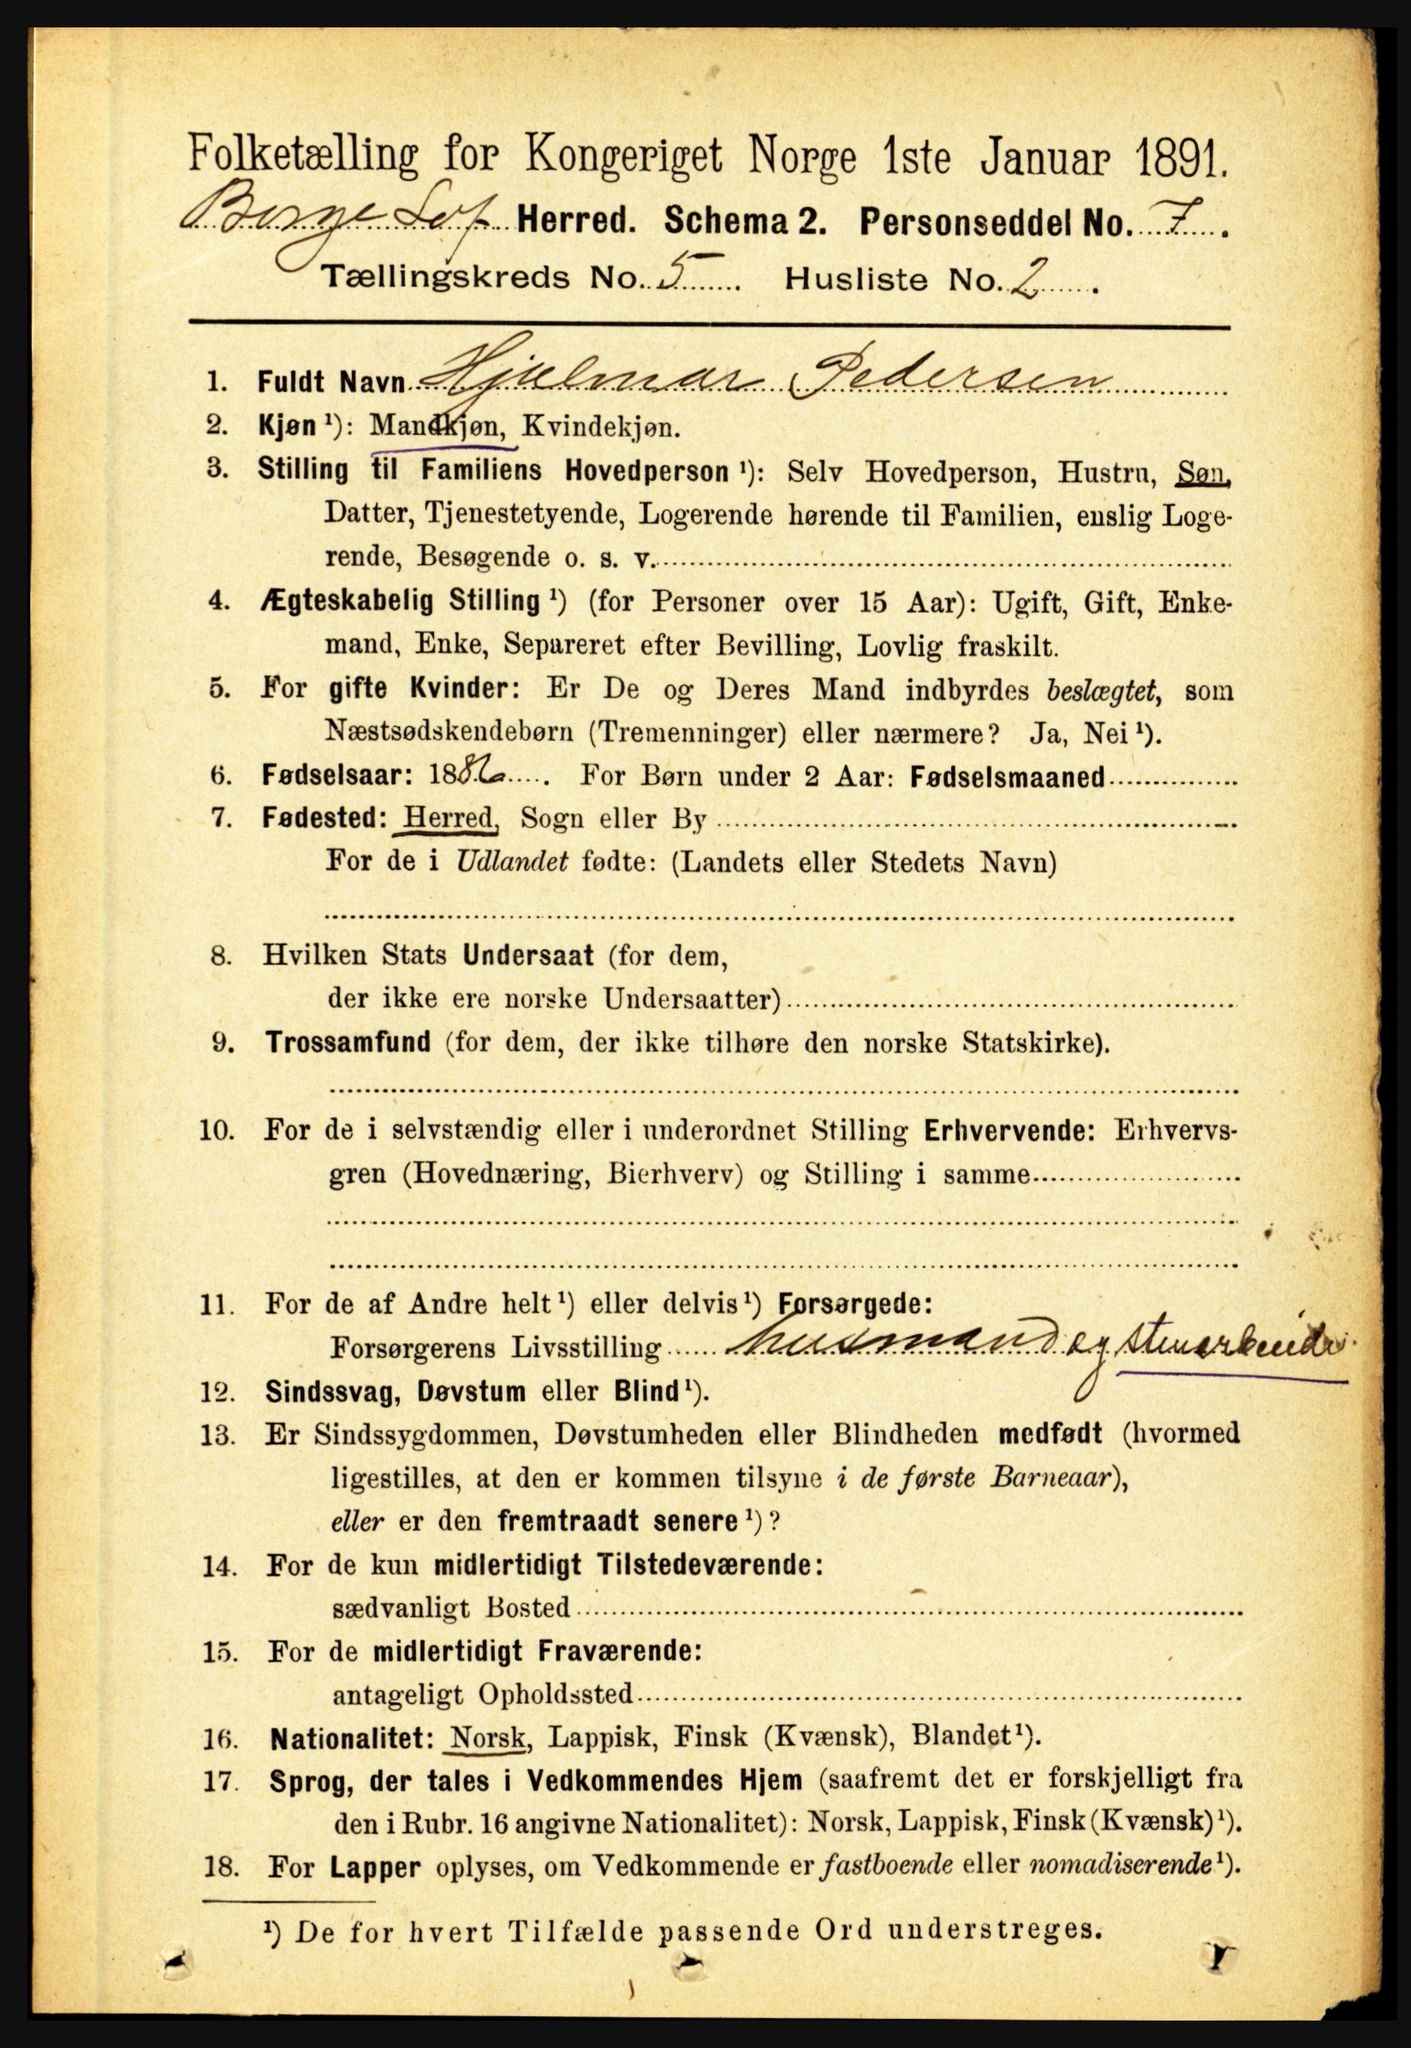 Folketælling for Kongeriget Norge 1ste Januar 1891.
Borge Lof Herred. Schema 2. Personseddel No. 7.
Tællingskreds No. 5 Husliste No. 2.
1. Fuldt Navn Hjalmar Pedersen
2. Kjøn ¹): Mandkjøn, Kvindekjøn.
3. Stilling til Familiens Hovedperson ¹): Selv Hovedperson, Hustru, Søn,
Datter, Tjenestetyende, Logerende hørende til Familien, enslig Loge-
rende, Besøgende o. s. v.
4. Ægteskabelig Stilling ¹) (for Personer over 15 Aar): Ugift, Gift, Enke-
mand, Enke, Separeret efter Bevilling, Lovlig fraskilt.
5. For gifte Kvinder: Er De og Deres Mand indbyrdes beslægtet, som
Næstsødskendebørn (Tremenninger) eller nærmere? Ja, Nei ¹).
6. Fødselsaar: 1886. For Børn under 2 Aar: Fødselsmaaned
7. Fødested: Herred, Sogn eller By
For de i Udlandet fødte: (Landets eller Stedets Navn)
8. Hvilken Stats Undersaat (for dem,
der ikke ere norske Undersaatter)
9. Trossamfund (for dem, der ikke tilhøre den norske Statskirke).
10. For de i selvstændig eller i underordnet Stilling Erhvervende: Erhvervs-
gren (Hovednæring, Bierhverv) og Stilling i samme
11. For de af Andre helt ¹) eller delvis ¹) Forsørgede:
Forsørgerens Livsstilling husmand og stenarbeider
12. Sindssvag, Døvstum eller Blind ¹).
13. Er Sindssygdommen, Døvstumheden eller Blindheden medfødt (hvormed
ligestilles, at den er kommen tilsyne i de første Barneaar),
eller er den fremtraadt senere ¹)?
14. For de kun midlertidigt Tilstedeværende:
sædvanligt Bosted
15. For de midlertidigt Fraværende:
antageligt Opholdssted
16. Nationalitet: Norsk, Lappisk, Finsk (Kvænsk), Blandet ¹).
17. Sprog, der tales i Vedkommendes Hjem (saafremt det er forskjelligt fra
den i Rubr. 16 angivne Nationalitet): Norsk, Lappisk, Finsk (Kvænsk) ¹).
18. For Lapper oplyses, om Vedkommende er fastboende eller nomadiserende ¹).
¹) De for hvert Tilfælde passende Ord understreges.